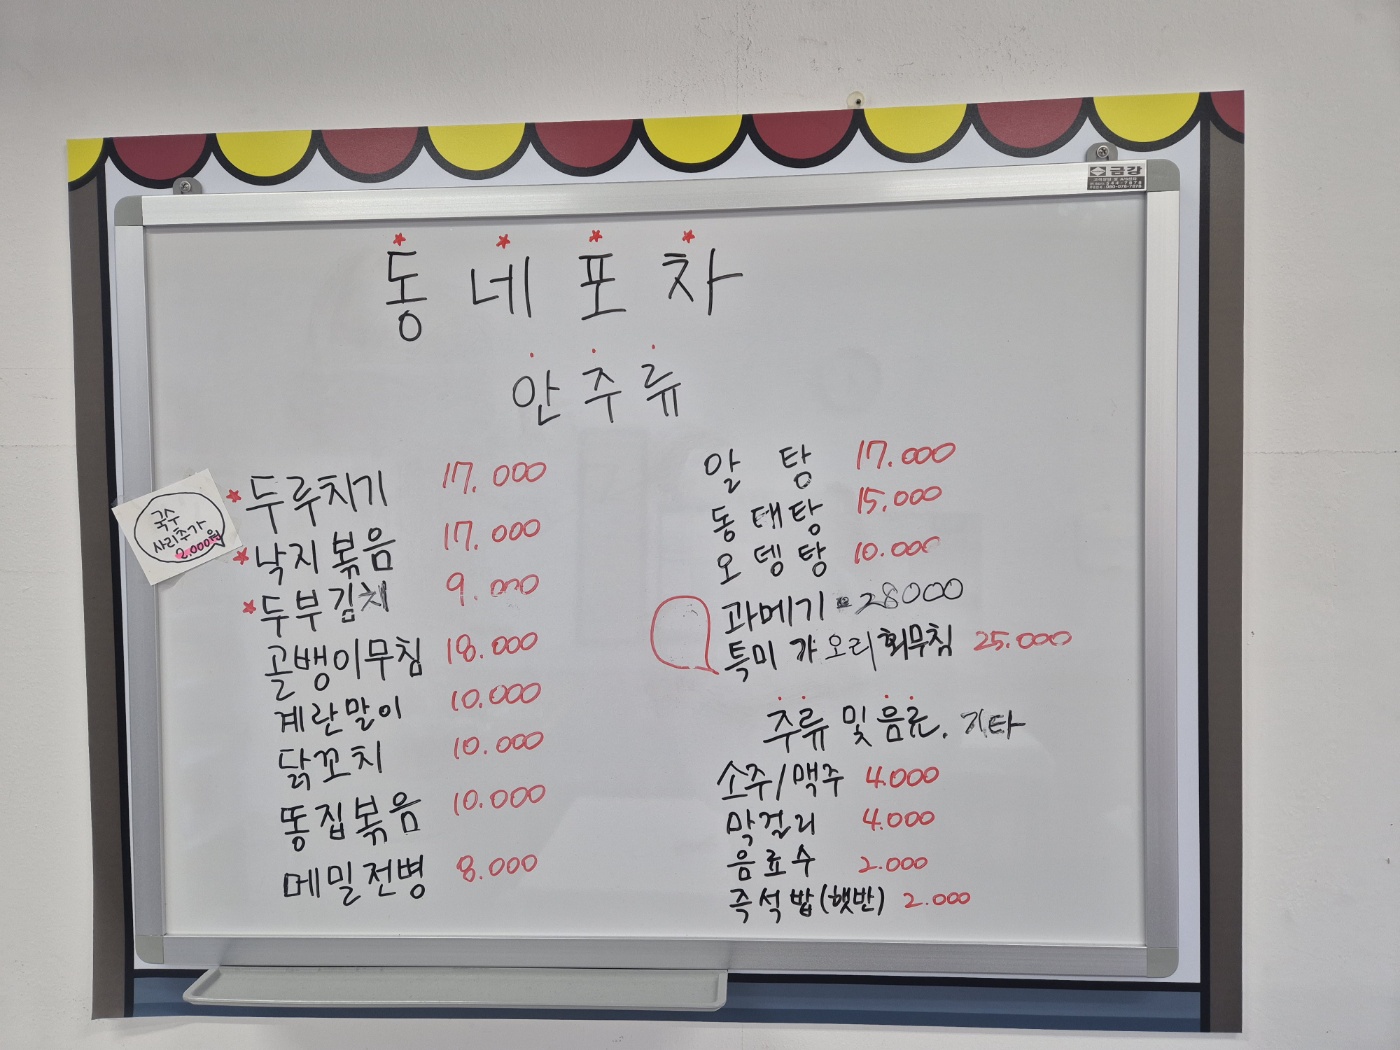 금강
동네포차
안주류
국수
사리추가
2.000원
두루치기 17.000
낙지볶음 17.000
두부김치 9.000
골뱅이무침 18.000
계란말이 10.000
닭꼬치 10.000
똥집볶음 10.000
메밀전병 8.000
알탕 17.000
동태탕 15.000
오뎅탕 10.000
과메기 28000
특미 가오리회무침 25.000
주류 및 음료. 기타
소주/맥주 4.000
막걸리 4.000
음료수 2.000
즉석밥(햇반) 2.000